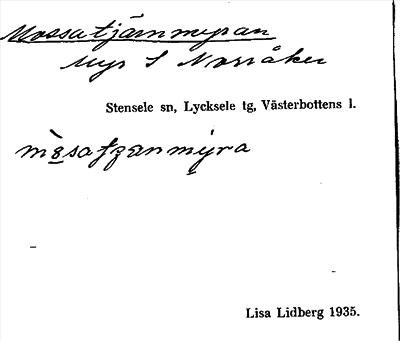 Mossatjärnmyran
Myr S Norråker
Stensele sn, Lycksele tg, Västerbottens l.
Lisa Lidberg 1935.